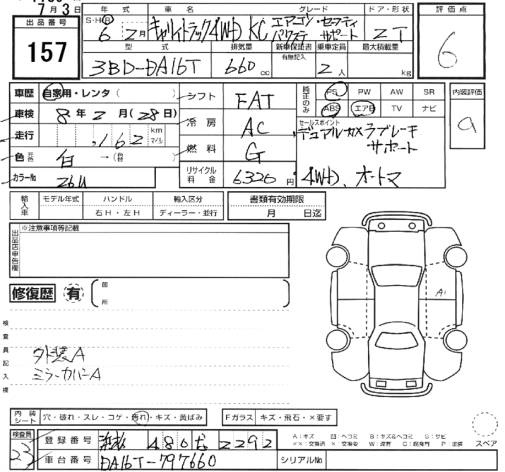 7月3日
出品番号
157
年式 車名 グレード ドア・形状
S・H・R
6年2月 キャリイトラック4WD KC エアコン・パワステ セーフティサポート 2T
型式 排気量 新車保証書 有無記入 乗車定員 最大積載量
3BD-DA16T 660cc 2人 kg
評価点
6
車歴 自家用・レンタ( )
車検 8年2月(28日)
走行 ,162 km マイル
色 元色 白 →(色 )
カラー№ 26U
シフト FAT
冷房 AC
燃料 G
リサイクル料金 6320円
純正のみ PS PW AW SR
ABS エアB TV ナビ
内装評価
a
セールスポイント
デュアルカメラブレーキ
サポート
4WD、オートマ
輸入車 モデル年式 ハンドル 輸入区分
右H・左H ディーラー・並行
書類有効期限
月 日迄
出品店申告欄
※注意事項等記載
修復歴 有 部所
検査員記入欄
外装A
ミラーカバーA
A1
内装シート 穴・破れ・スレ・コゲ・汚れ・キズ・黄ばみ
Fガラス キズ・飛石・×要す
検査員
23
登録番号 480 2292
車台番号 DA16T-797660
シリアル№
A:キズ U:ヘコミ B:キズ&ヘコミ S:サビ
スペア